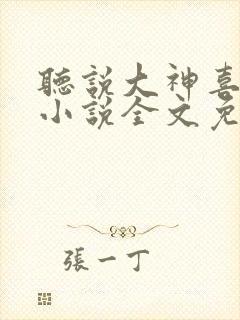 聽說大神喜
小說全文免
張一丁